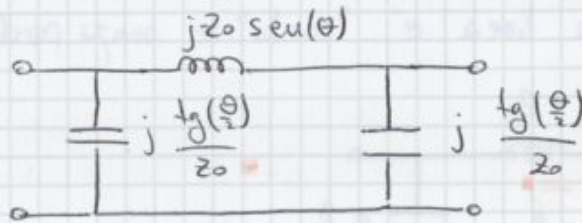 jZo sen(θ)
j tg(θ/2)/Zo
j tg(θ/2)/Zo